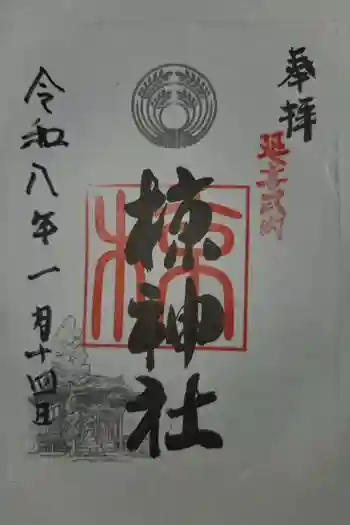 奉拝
延喜式内
楝神社
令和八年一月十四日